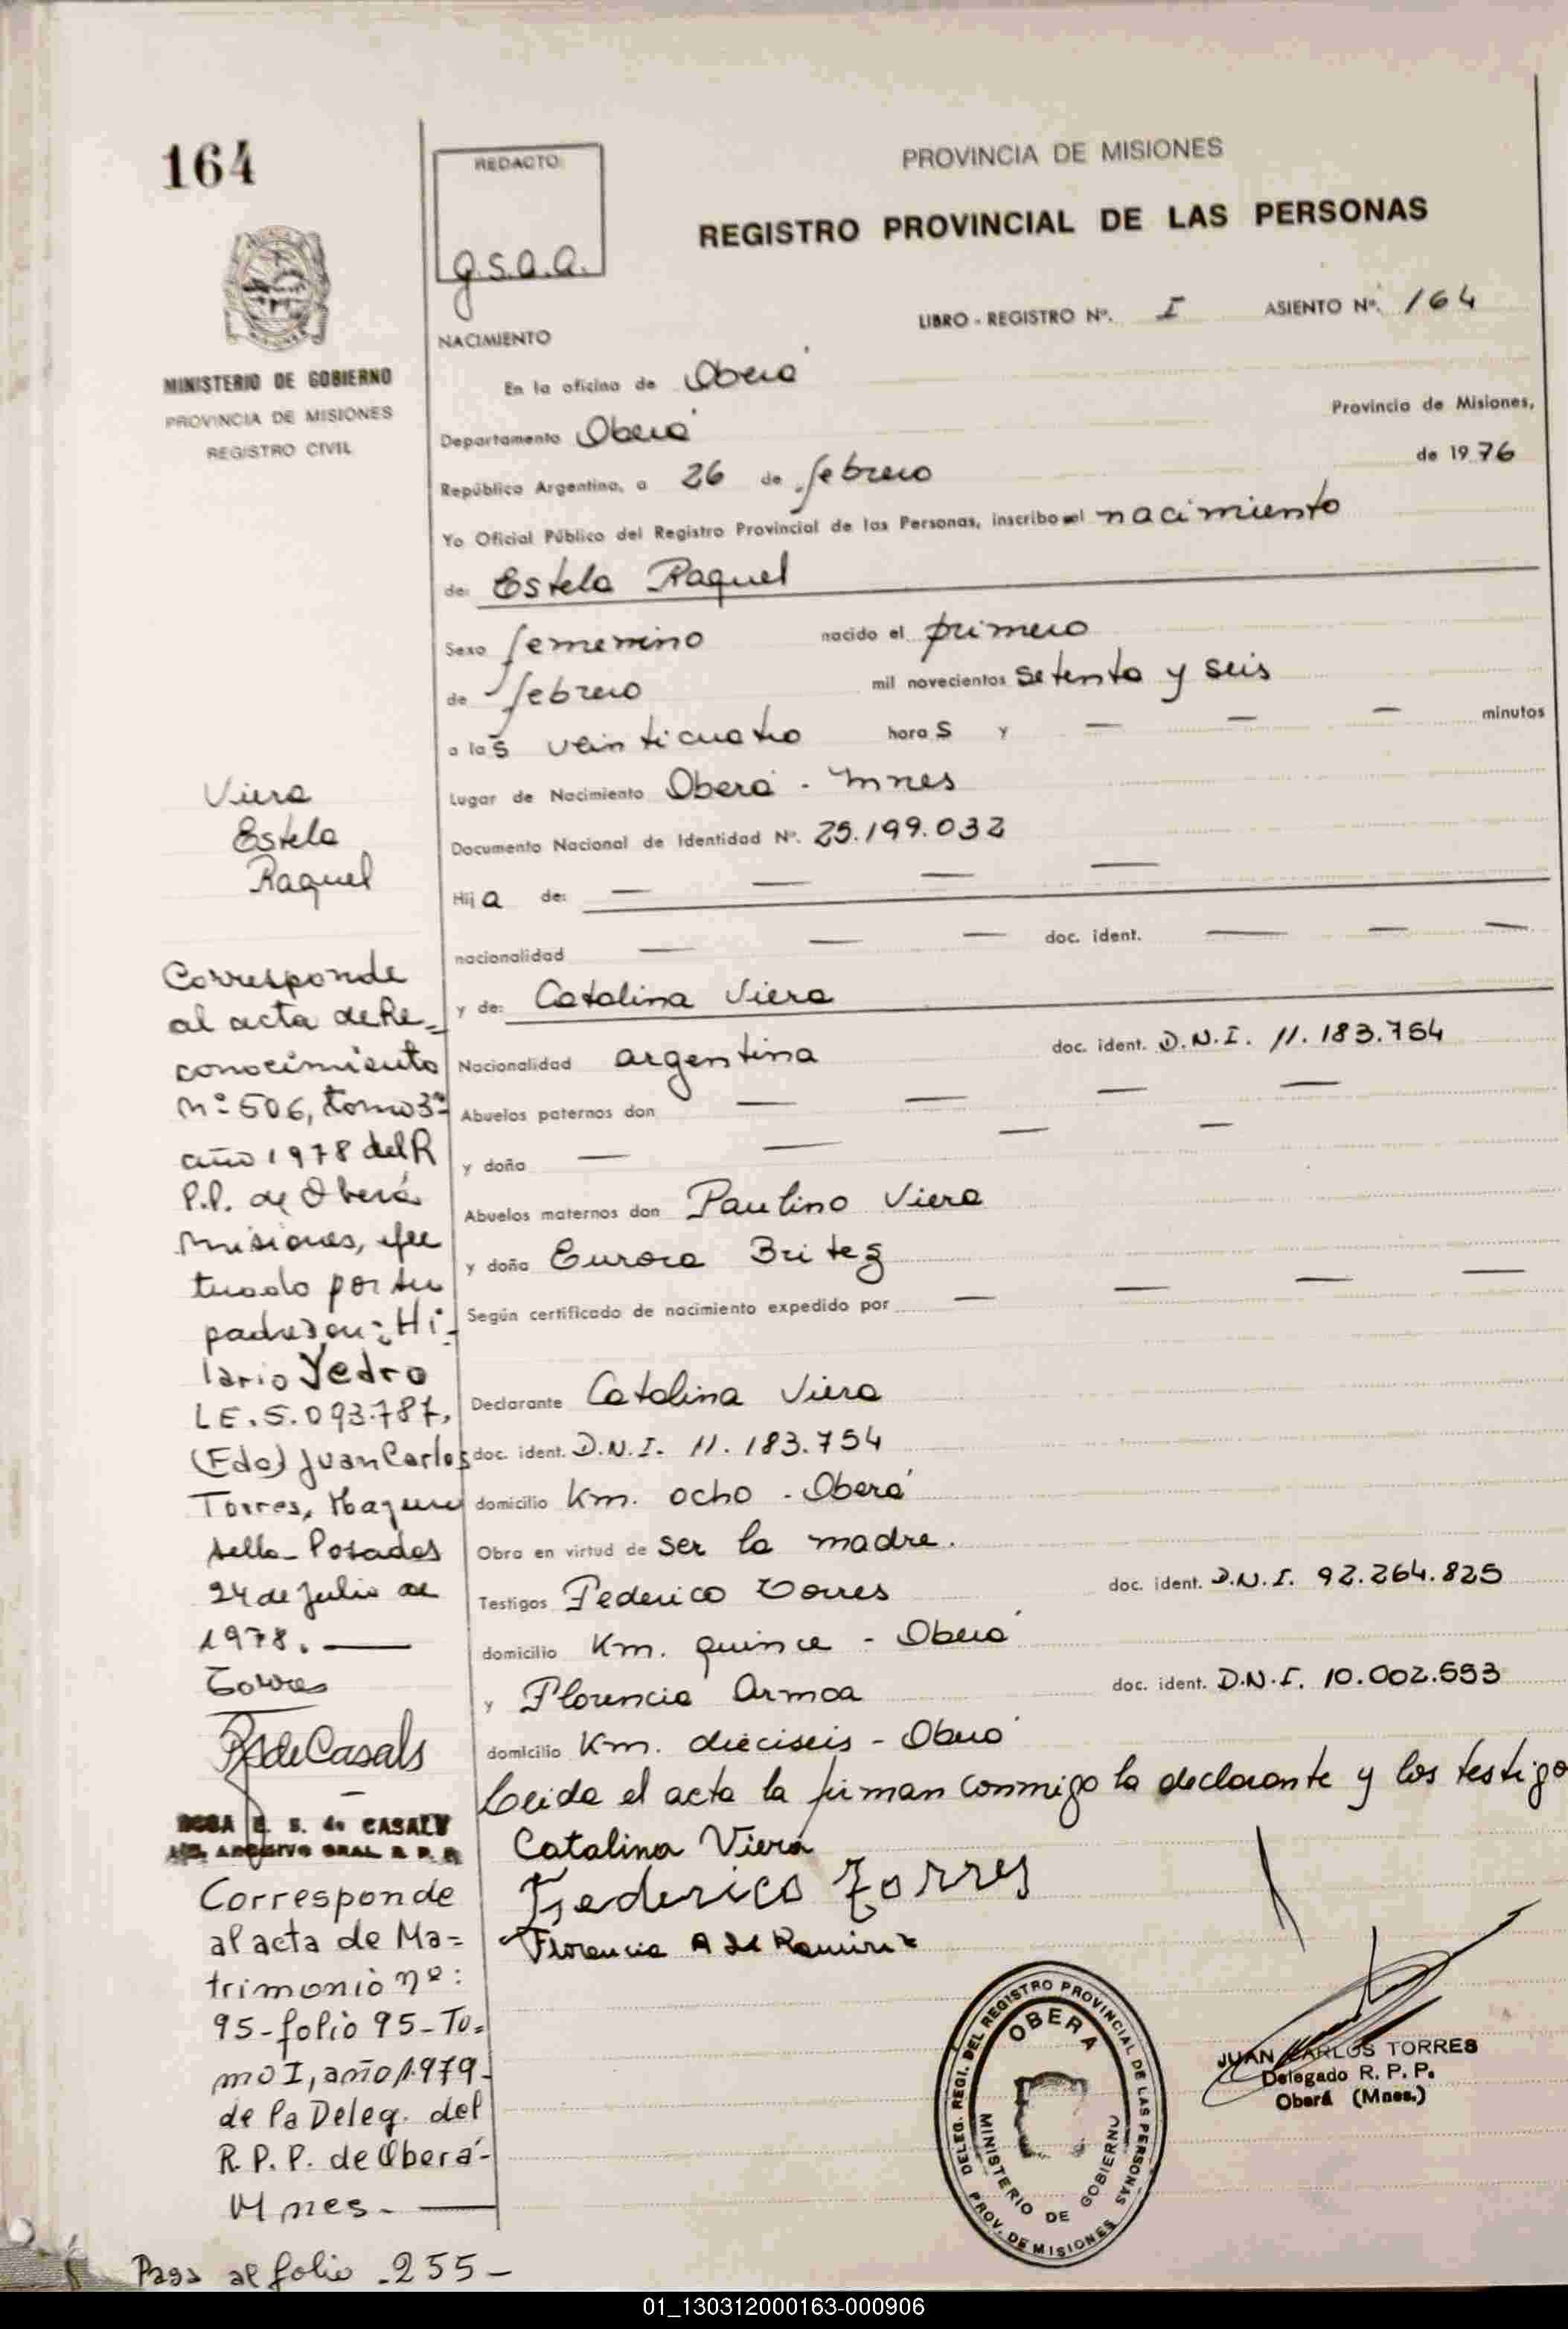 164
MINISTERIO DE GOBIERNO
PROVINCIA DE MISIONES
REGISTRO CIVIL
REDACTO:
g.s.a.a.
PROVINCIA DE MISIONES
REGISTRO PROVINCIAL DE LAS PERSONAS
LIBRO - REGISTRO Nº. I ASIENTO Nº. 164
NACIMIENTO
En la oficina de Oberá
Departamento Oberá Provincia de Misiones,
República Argentina, a 26 de febrero de 1976
Yo Oficial Público del Registro Provincial de las Personas, inscribo el nacimiento
de: Estela Raquel
Sexo femenino nacido el primero
de febrero mil novecientos setenta y seis
a las veinticuatro horas y — — — minutos
Lugar de Nacimiento Oberá - Mnes
Documento Nacional de Identidad Nº. 25.199.032
Hija de: — — — —
nacionalidad — — — doc. ident. — — —
y de: Catalina Viera
Nacionalidad argentina doc. ident. D.N.I. 11.183.754
Abuelos paternos don — — — —
y doña — — — —
Abuelos maternos don Paulino Viera
y doña Eurora Britez
Según certificado de nacimiento expedido por — — — —
Declarante Catalina Viera
doc. ident. D.N.I. 11.183.754
domicilio Km. ocho - Oberá
Obra en virtud de ser la madre.
Testigos Federico Torres doc. ident. D.N.I. 92.264.825
domicilio Km. quince - Oberá
y Florencia Armoa doc. ident. D.N.I. 10.002.553
domicilio Km. dieciseis - Oberá
Leida el acta la firman conmigo la declarante y los testigo
Catalina Viera
Federico Torres
Florencia A de Ramirez
DELEG. REGI. DEL REGISTRO PROVINCIAL DE LAS PERSONAS
OBERA
MINISTERIO DE GOBIERNO
PROV. DE MISIONES
JUAN CARLOS TORRES
Delegado R. P. P.
Oberá (Mnes.)
Viera
Estela
Raquel
Corresponde
al acta de Re-
conocimiento
nº 506, tomo 3º
año 1978 del R
P.P. de Oberá
Misiones, efec
tuado por su
padre don: Hi-
lario Yedro
LE. 5.093.787,
(Fdo) Juan Carlos
Torres, Hay un
sello - Posadas
24 de Julio de
1978. —
Torres
Rs de Casals
ROSA E. S. de CASALS
ARCHIVO GRAL R. P. P.
Corresponde
al acta de Ma=
trimonio nº:
95-folio 95-To=
mo I, año 1979-
de la Deleg. del
R. P. P. de Oberá-
Mnes. —
Pasa al folio -255-
01_130312000163-000906